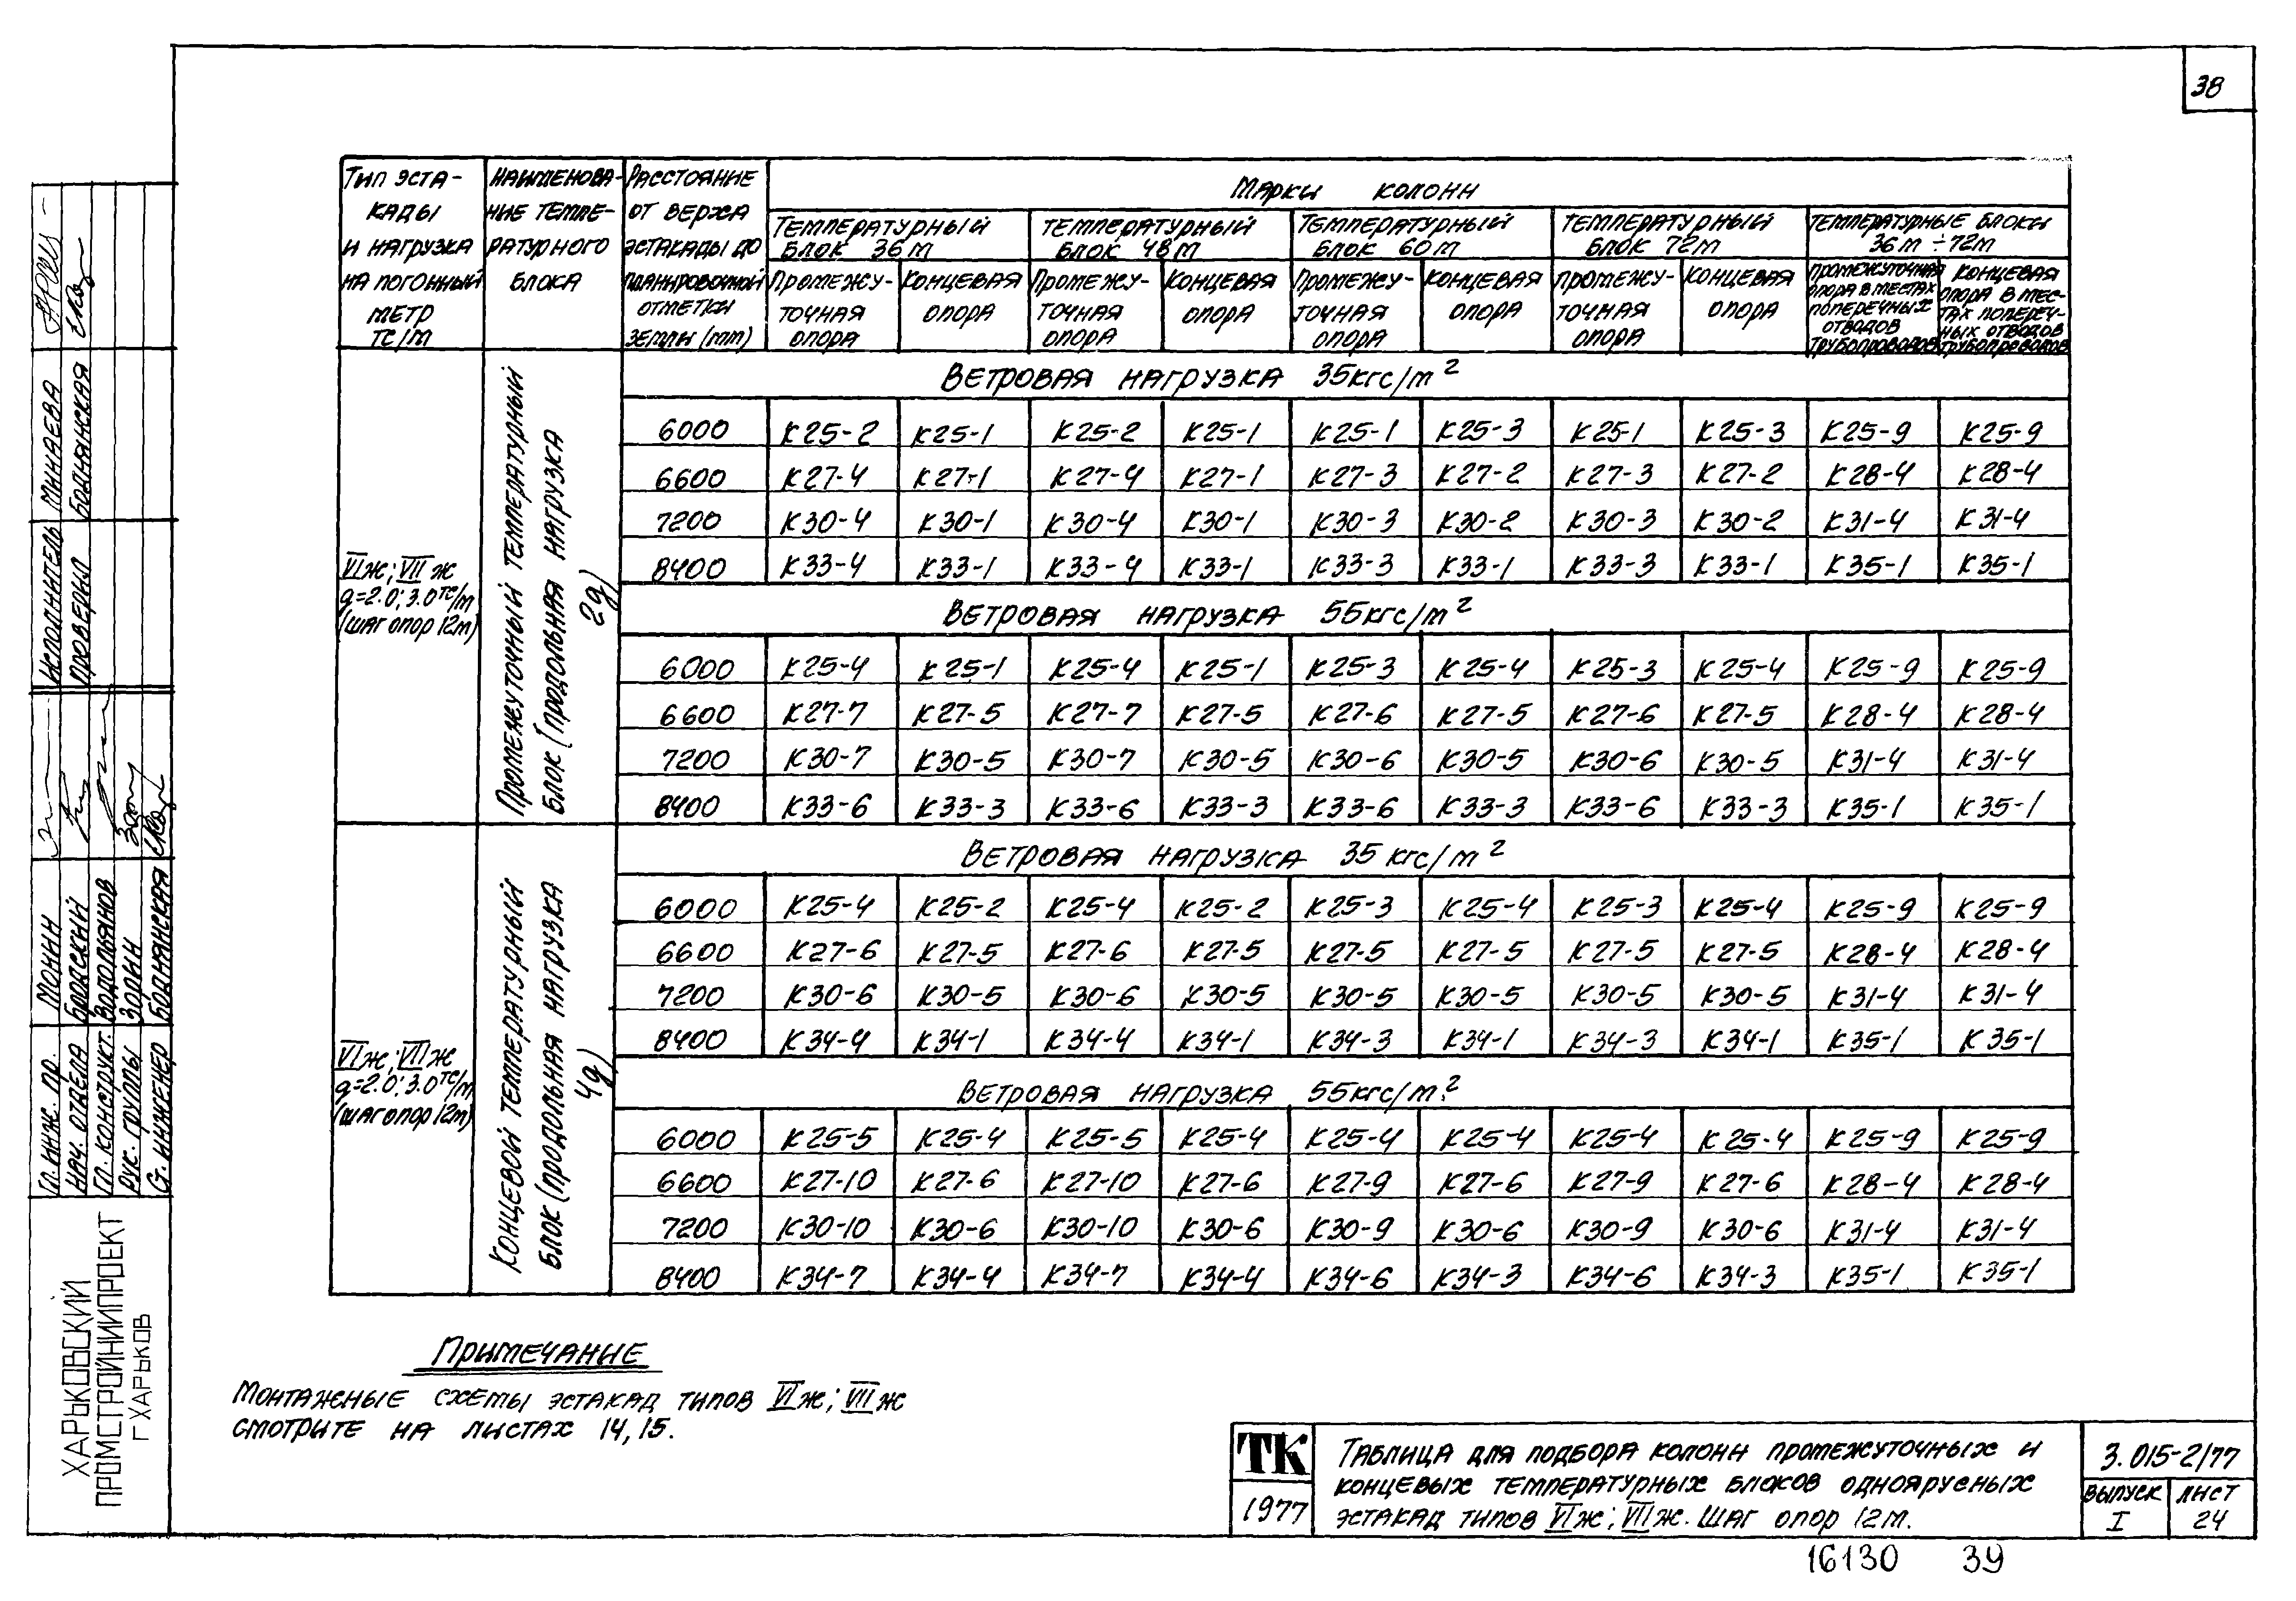 38
Тип эстакады и нагрузка на погонный метр тс/м
Наименование температурного блока
Расстояние от верха эстакады до планировочной отметки земли (мм)
Марки колонн
Температурный блок 36м
Температурный блок 48м
Температурный блок 60м
Температурный блок 72м
Температурные блоки 36м ÷ 72м
Промежуточная опора
Концевая опора
Промежуточная опора
Концевая опора
Промежуточная опора
Концевая опора
Промежуточная опора
Концевая опора
Промежуточная опора в местах поперечных отводов трубопроводов
Концевая опора в местах поперечных отводов трубопроводов
VIж; VIIж
q=2.0; 3.0 тс/м
(шаг опор 12м)
Промежуточный температурный блок (продольная нагрузка 2q)
Ветровая нагрузка 35кгс/м²
6000 К25-2 К25-1 К25-2 К25-1 К25-1 К25-3 К25-1 К25-3 К25-9 К25-9
6600 К27-4 К27-1 К27-4 К27-1 К27-3 К27-2 К27-3 К27-2 К28-4 К28-4
7200 К30-4 К30-1 К30-4 К30-1 К30-3 К30-2 К30-3 К30-2 К31-4 К31-4
8400 К33-4 К33-1 К33-4 К33-1 К33-3 К33-1 К33-3 К33-1 К35-1 К35-1
Ветровая нагрузка 55кгс/м²
6000 К25-4 К25-1 К25-4 К25-1 К25-3 К25-4 К25-3 К25-4 К25-9 К25-9
6600 К27-7 К27-5 К27-7 К27-5 К27-6 К27-5 К27-6 К27-5 К28-4 К28-4
7200 К30-7 К30-5 К30-7 К30-5 К30-6 К30-5 К30-6 К30-5 К31-4 К31-4
8400 К33-6 К33-3 К33-6 К33-3 К33-6 К33-3 К33-6 К33-3 К35-1 К35-1
VIж; VIIж
q=2.0; 3.0 тс/м
(шаг опор 12м)
Концевой температурный блок (продольная нагрузка 4q)
Ветровая нагрузка 35 кгс/м²
6000 К25-4 К25-2 К25-4 К25-2 К25-3 К25-4 К25-3 К25-4 К25-9 К25-9
6600 К27-6 К27-5 К27-6 К27-5 К27-5 К27-5 К27-5 К27-5 К28-4 К28-4
7200 К30-6 К30-5 К30-6 К30-5 К30-5 К30-5 К30-5 К30-5 К31-4 К31-4
8400 К34-4 К34-1 К34-4 К34-1 К34-3 К34-1 К34-3 К34-1 К35-1 К35-1
Ветровая нагрузка 55кгс/м²
6000 К25-5 К25-4 К25-5 К25-4 К25-4 К25-4 К25-4 К25-4 К25-9 К25-9
6600 К27-10 К27-6 К27-10 К27-6 К27-9 К27-6 К27-9 К27-6 К28-4 К28-4
7200 К30-10 К30-6 К30-10 К30-6 К30-9 К30-6 К30-9 К30-6 К31-4 К31-4
8400 К34-7 К34-4 К34-7 К34-4 К34-6 К34-3 К34-6 К34-3 К35-1 К35-1
Примечание
Монтажные схемы эстакад типов VIж; VIIж
смотрите на листах 14, 15.
ТК
1977
Таблица для подбора колонн промежуточных и
концевых температурных блоков одноярусных
эстакад типов VIж; VIIж. Шаг опор 12м.
3.015-2/77
Выпуск I
Лист 24
16130 39
Исполнитель Минаева
Проверил Боднянская
Гл. инж. пр. Монин
Нач. отдела Бродский
Гл. конструкт. Водольянов
Рук. группы Зорин
Ст. инженер Боднянская
Харьковский
Промстройниипроект
г Харьков